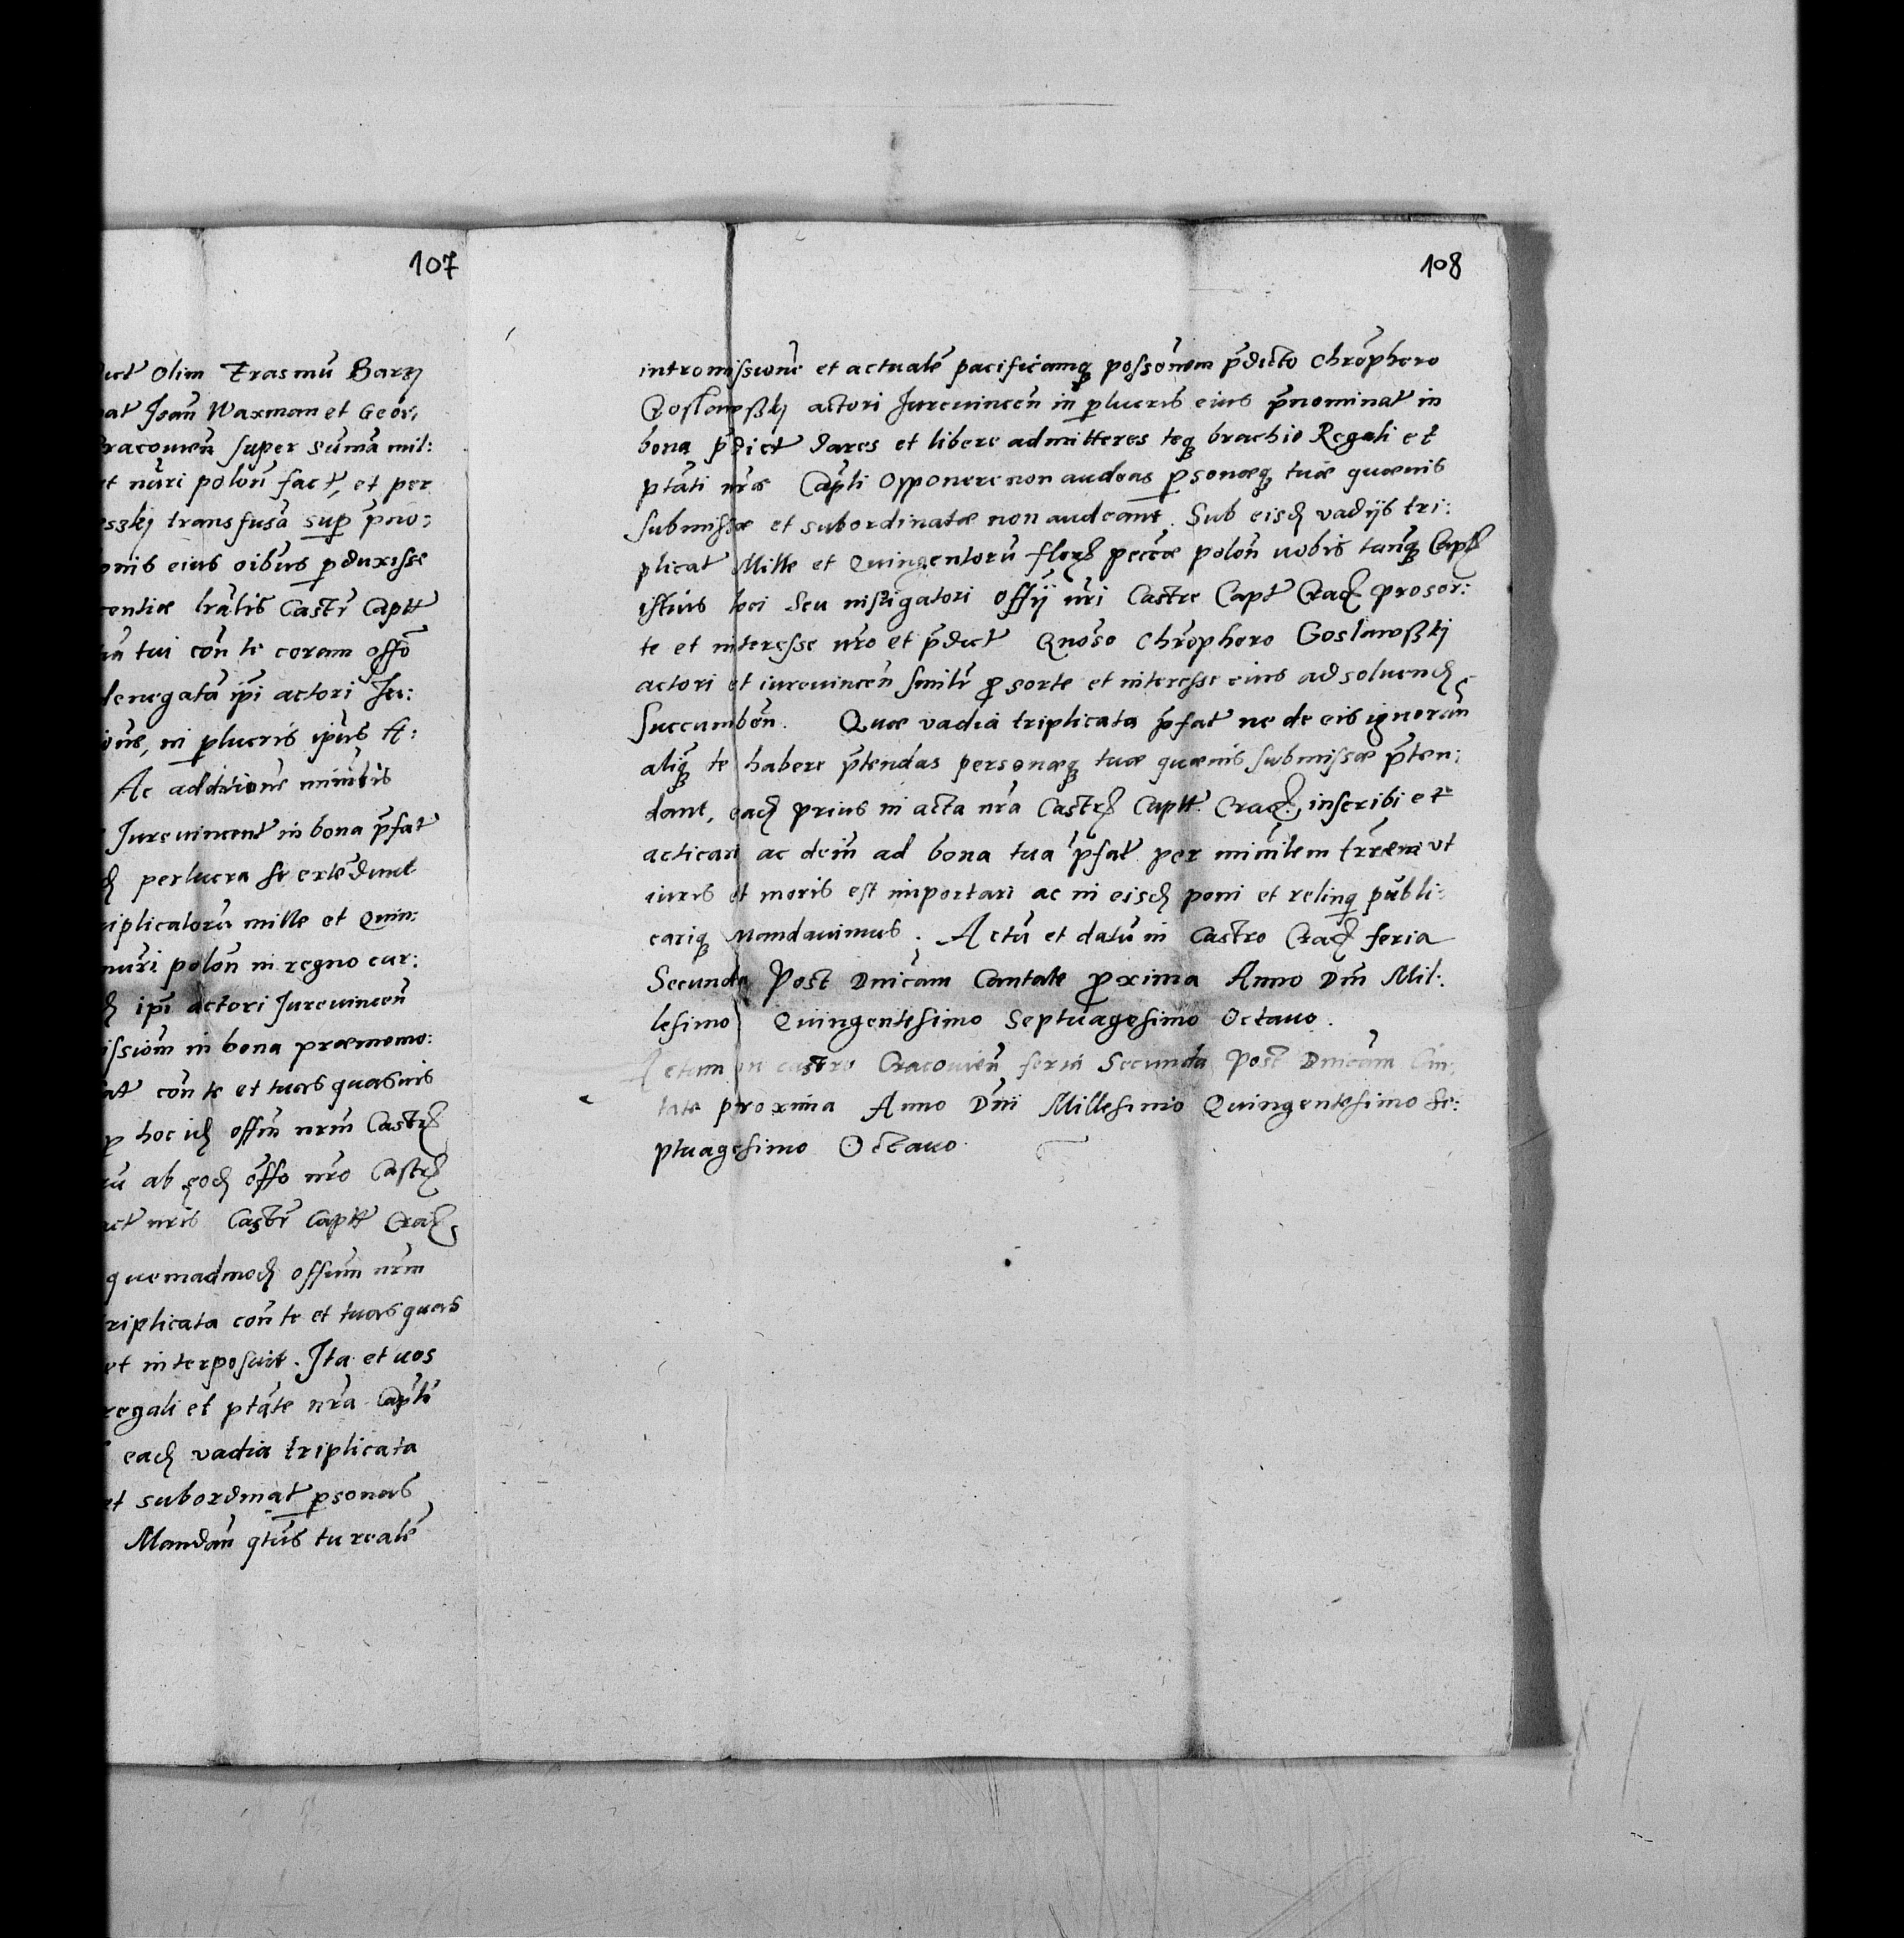 107
olim Erasmũ Barzj
Joañ Waxman et Geor,
racouieñ super sũmã mil:
et nũri poloñ fact, et per
sszkj transfusã sup p̃no:
eius oibus pduxisse
lralis Castr̃ Captt
tui coñ te coram offõ
denegatã ip̃i actori Ju:
in plucris ip̃ius A:
Ac additione minist̃is
Jurevincent in bona p̃fat
perlucra se extẽdunt
riplicatorũ mille et Quin:
nuri poloñ in regno cur:
ip̃i actori Jurevinceñ
issiom̃ in bona præmemo:
coñ te et tuas quasuis
p hoc id offiũ nrũm Castr
ab eod offo nrõ Castr
nris Castr̃ Captt Crac,
quemadmod offium nrm̃
triplicata coñ te et tuas quas
interposuit. Ita et uos
regali et ptate nrã Captli
ead vadia triplicata
et subordinat psonas
Mandañ qtus tu realẽ
108
intromissionẽ et actualẽ pacificamq possionem p̃dicto Chr̃ophoro
Goslawsskj actori Jurevinceñ in plucris eius p̃nominat in
bona p̃dict dares et libere admitteres teq brachio Regali et
ptati nræ Captli opponere non audeas psonæq tuæ quæuis
submissæ et subordinatæ non audeant. Sub eisd vadijs tri:
plicat Mille et Quingentorũ flor pecũæ poloñ nobis tanq Capt
istius loci seu instigatori offij nri Castre Capt Crac pro sor:
te et interesse nrõ et p̃dict Gnoso Chr̃ophoro Goslawsskj
actori et iurevinceñ simitr̃ p sorte et interesse eius ad soluend
succumbeñ. Quæ vadia triplicata p̃fat ne de eis ignorañ
aliq te habere p̃tendas personæq tuæ quæuis submissæ p̃ten:
dant, ead prius in acta nrã Castr Captt Crac. inscribi et
acticari ac dein̄ ad bona tua p̃fat per minist̃em trr̃æm ut
iuris et moris est importari ac in eisd poni et relinq publi:
cariq mandauimus. Actũ et datũ in Castro Crac feria
Secunda Post Dnicam Cantate proxima Anno Dni Mil:
lesimo Quingentesimo Septuagesimo Octauo.
Actum in castro Cracouieñ feria Secunda Post Dnicam Can:
tate proxima Anno Dni Millesimo Quingentesimo Se:
ptuagesimo Octauo.